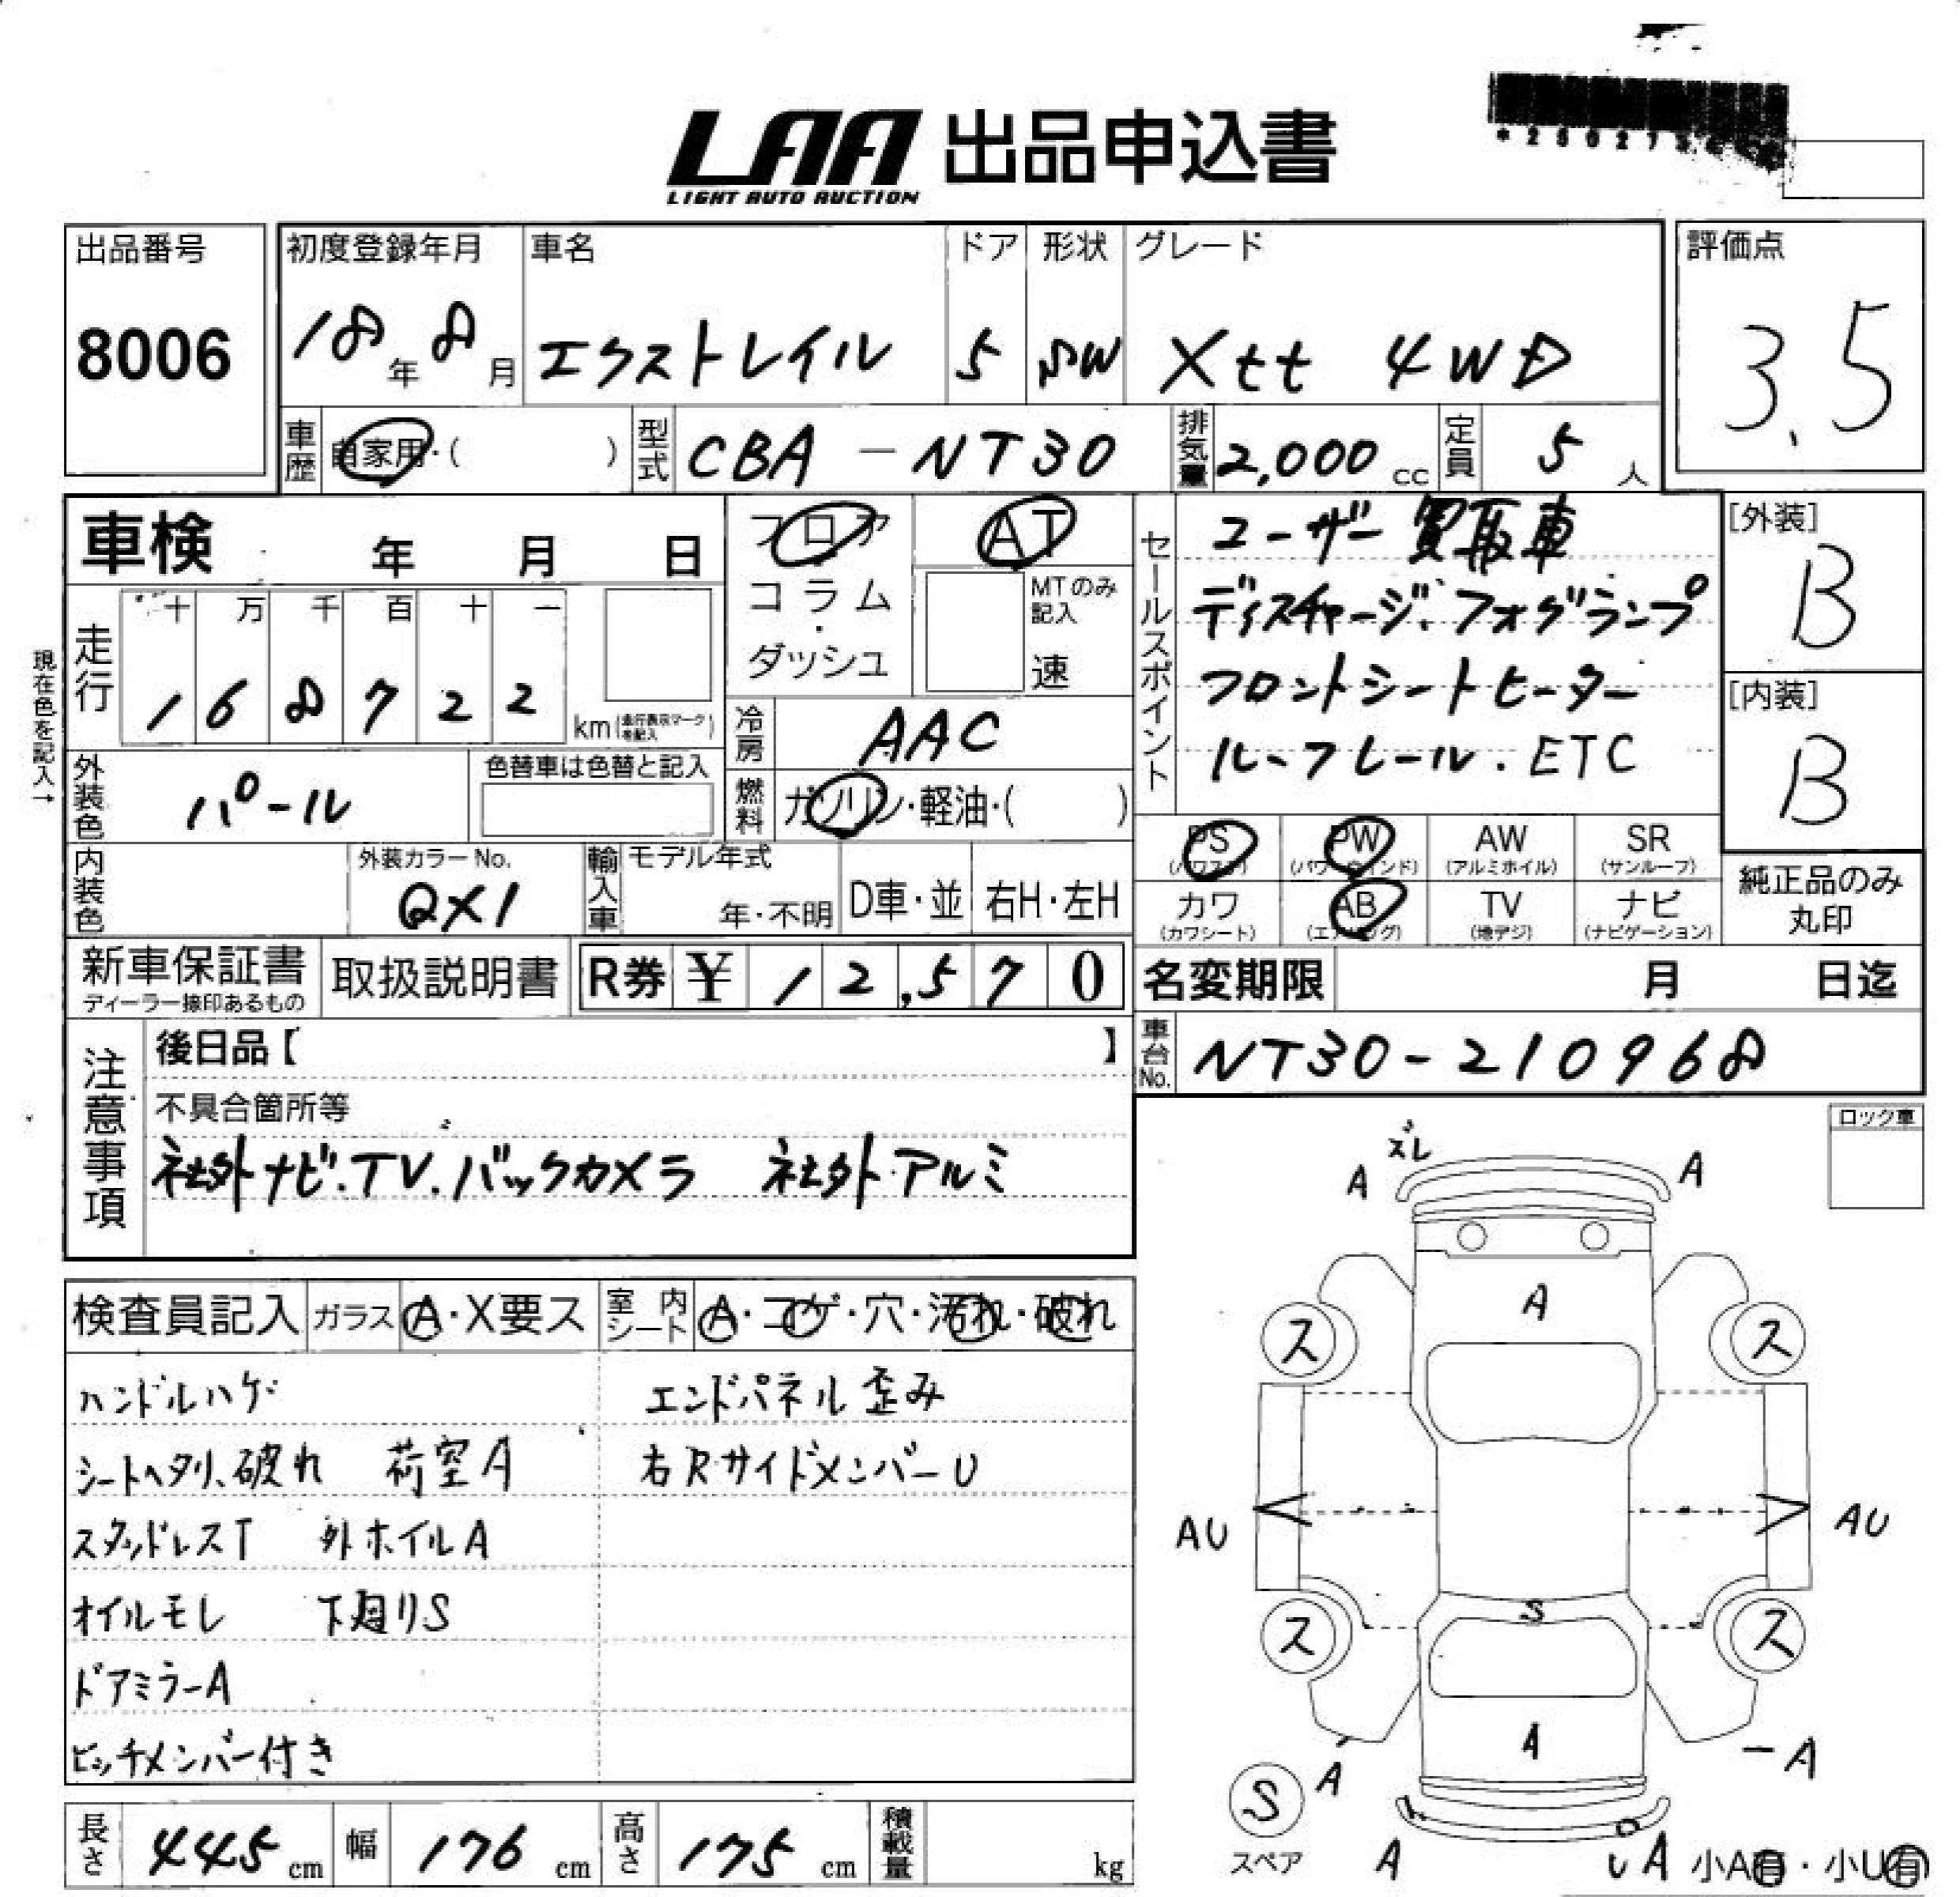 LAA 出品申込書
LIGHT AUTO AUCTION
出品番号
8006
初度登録年月 車名 ドア 形状 グレード
18年 8月 エクストレイル 5 SW Xtt 4WD
評価点
3.5
車歴 自家用・( ) 型式 CBA-NT30 排気量 2,000 cc 定員 5 人
車検 年 月 日
フロア
コラム
・
ダッシュ
AT
MTのみ
記入
速
現在色を記入→
走行 十 万 千 百 十 一
1 6 8 7 2 2 km (走行表示マークを記入)
冷房 AAC
外装色 パール 色替車は色替と記入
燃料 ガソリン・軽油・( )
セールスポイント
ユーザー買取車
ディスチャージ、フォグランプ
フロントシートヒーター
ルーフレール・ETC
[外装]
B
[内装]
B
PS AW PW SR
(パワステ) (パワーウィンド) (アルミホイル) (サンルーフ)
カワ AB TV ナビ
(カワシート) (エアバッグ) (地デジ) (ナビゲーション)
純正品のみ
丸印
内装色 外装カラーNo.
QX1
輸入車 モデル年式
年・不明 D車・並 右H・左H
新車保証書
ディーラー捺印あるもの
取扱説明書 R券 ¥ 12,570
名変期限 月 日迄
車台No. NT30-210968
注意事項
後日品【 】
不具合箇所等
社外ナビ.TV.バックカメラ 社外アルミ
ロック車
検査員記入 ガラス A・X要ス 室内シート A・コゲ・穴・汚れ・破れ
ハンドルハゲ エンドパネル歪み
シートヘタリ、破れ 荷室A 右Rサイドメンバー U
スタッドレスT 外ホイルA
オイルモレ 下廻りS
ドアミラーA
ヒッチメンバー付き
ズレ
A A
A
ス ス
AU AU
S
ス ス
A
A A
S
スペア
A A
小A有・小U有
長さ 445 cm 幅 176 cm 高さ 175 cm 積載量 kg